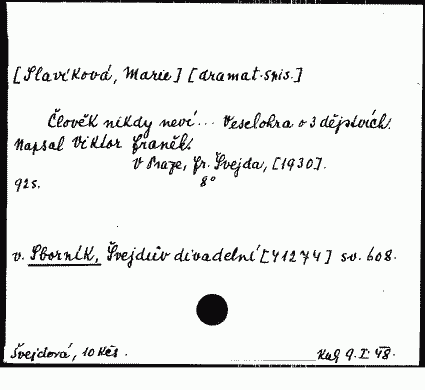 [Slavíková, Marie] [dramat. spis.]
Člověk nikdy neví... Veselohra o 3 dějstvích.
Napsal Viktor Franěk.
V Praze, Fr. Švejda, [1930].
92 s. 8°
v. Sborník, Švejdův divadelní [41274] sv. 608.
Švejdová, 10 Kčs. Kuč 9. I. 48.